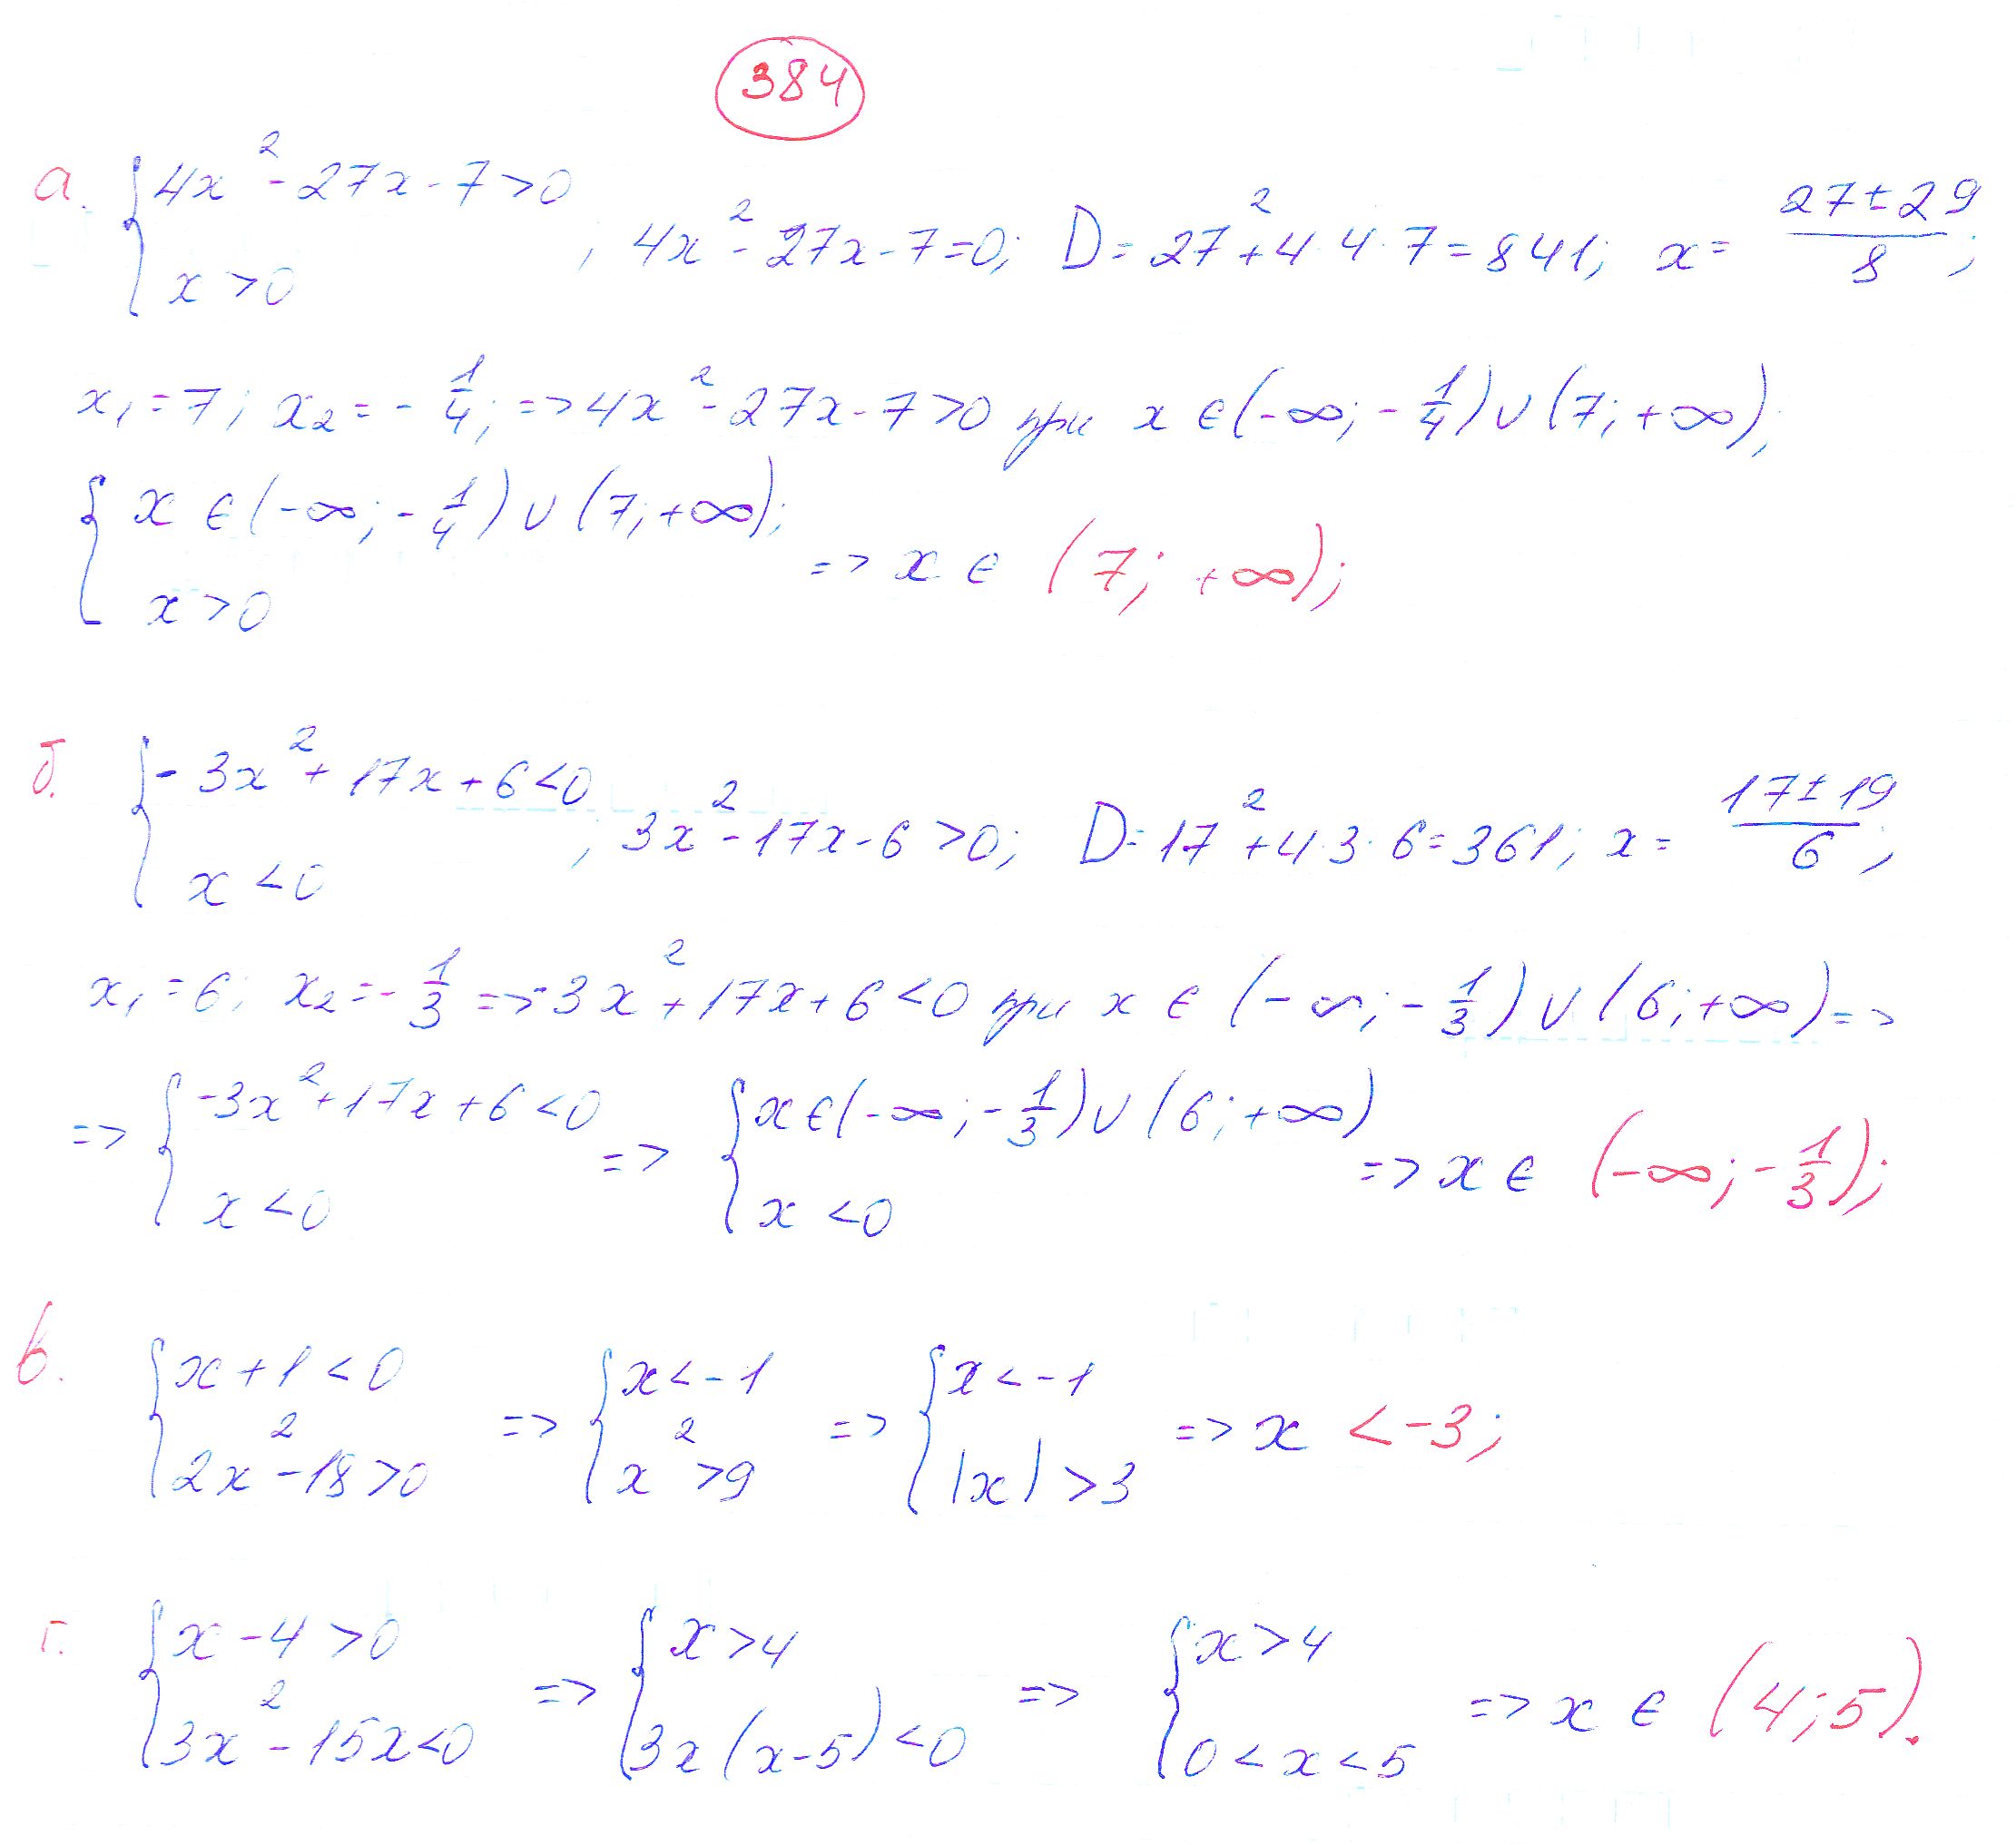 384
а. { 4x² - 27x - 7 > 0
x > 0 ; 4x² - 27x - 7 = 0; D = 27² + 4·4·7 = 841; x = (27 ± 29)/8;
x₁ = 7; x₂ = -1/4; => 4x² - 27x - 7 > 0 при x ∈ (-∞; -1/4) ∪ (7; +∞);
{ x ∈ (-∞; -1/4) ∪ (7; +∞);
x > 0 => x ∈ (7; +∞);
б. { -3x² + 17x + 6 < 0
x < 0 ; 3x² - 17x - 6 > 0; D = 17² + 4·3·6 = 361; x = (17 ± 19)/6;
x₁ = 6; x₂ = -1/3 => -3x² + 17x + 6 < 0 при x ∈ (-∞; -1/3) ∪ (6; +∞) =>
=> { -3x² + 17x + 6 < 0
x < 0 => { x ∈ (-∞; -1/3) ∪ (6; +∞)
x < 0 => x ∈ (-∞; -1/3);
в. { x + 1 < 0
2x² - 18 > 0 => { x < -1
x² > 9 => { x < -1
|x| > 3 => x < -3;
г. { x - 4 > 0
3x² - 15x < 0 => { x > 4
3x(x - 5) < 0 => { x > 4
0 < x < 5 => x ∈ (4; 5).